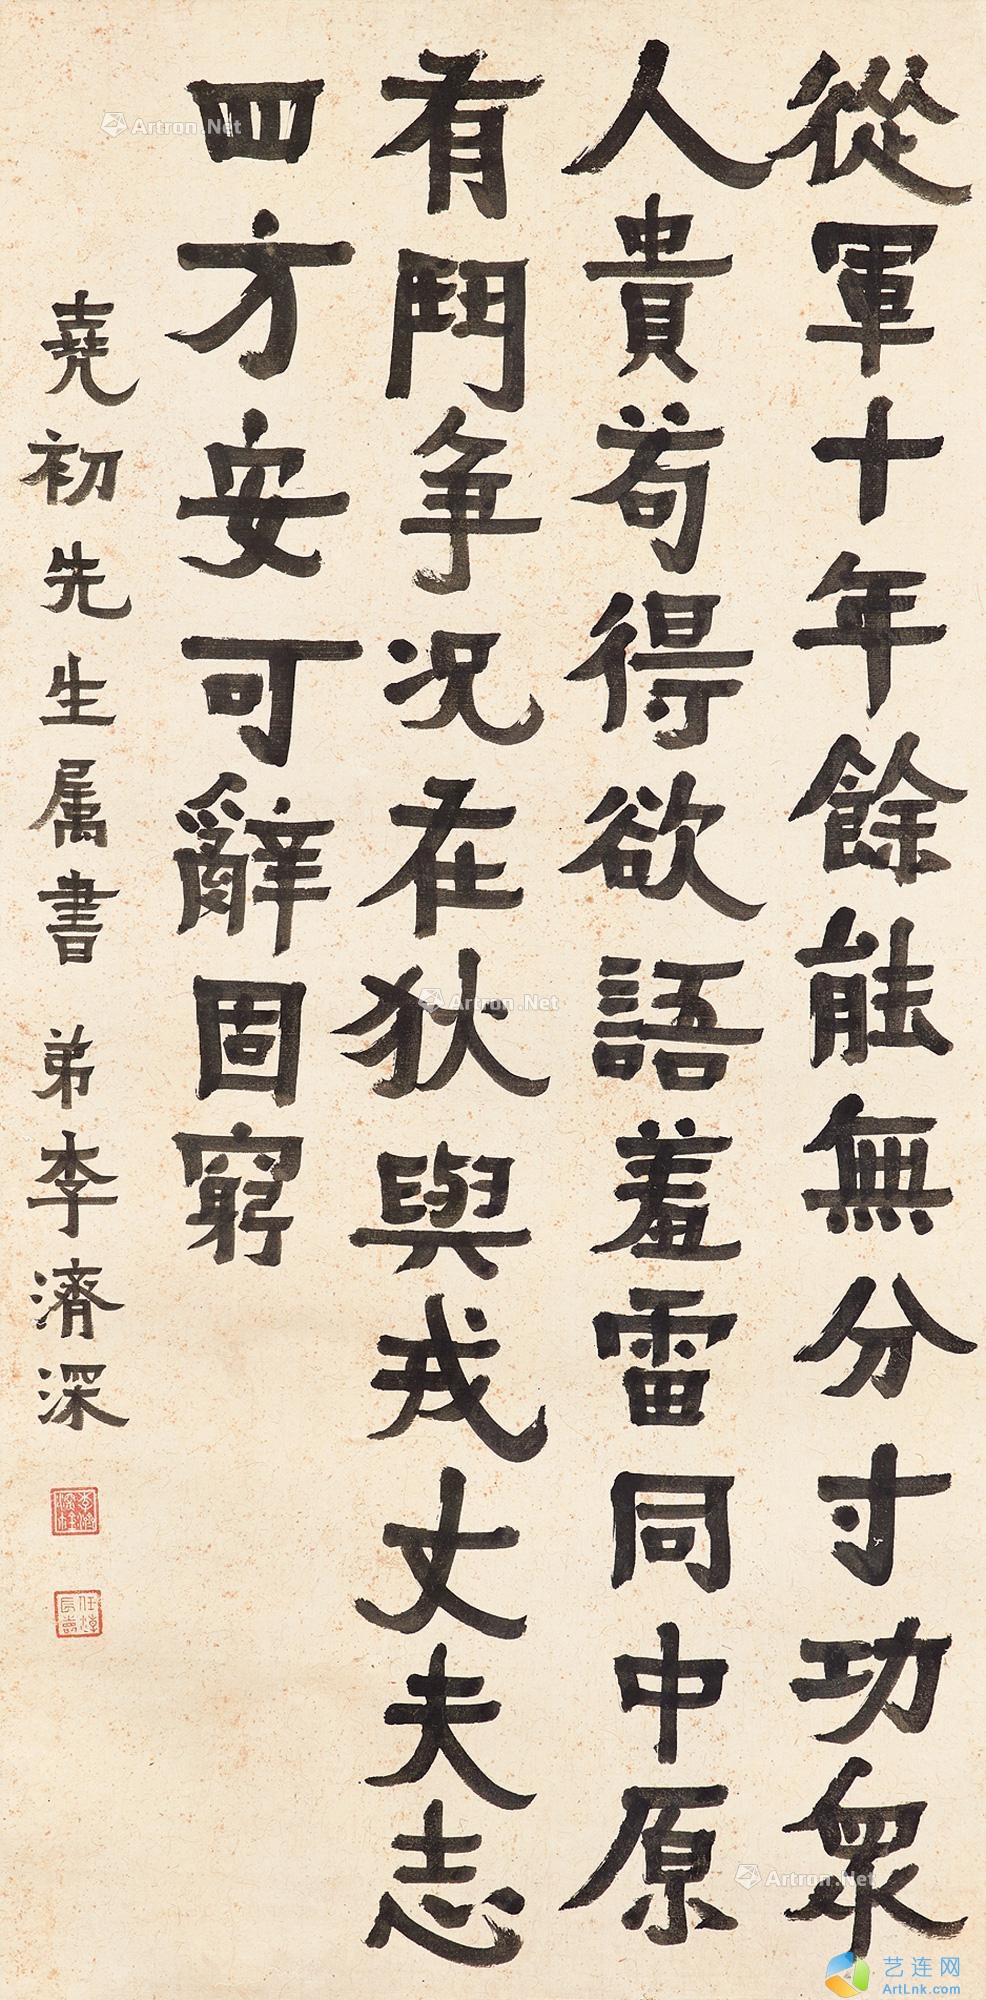 從軍十年餘能無分寸功衆
人貴苟得欲語羞雷同中原
有鬥争況在狄與戎丈夫志
四方安可辭固窮
堯初先生属書 弟李濟深
Artron.Net
Artron.Net
Artron.Net
艺连网
ArtLnk.com